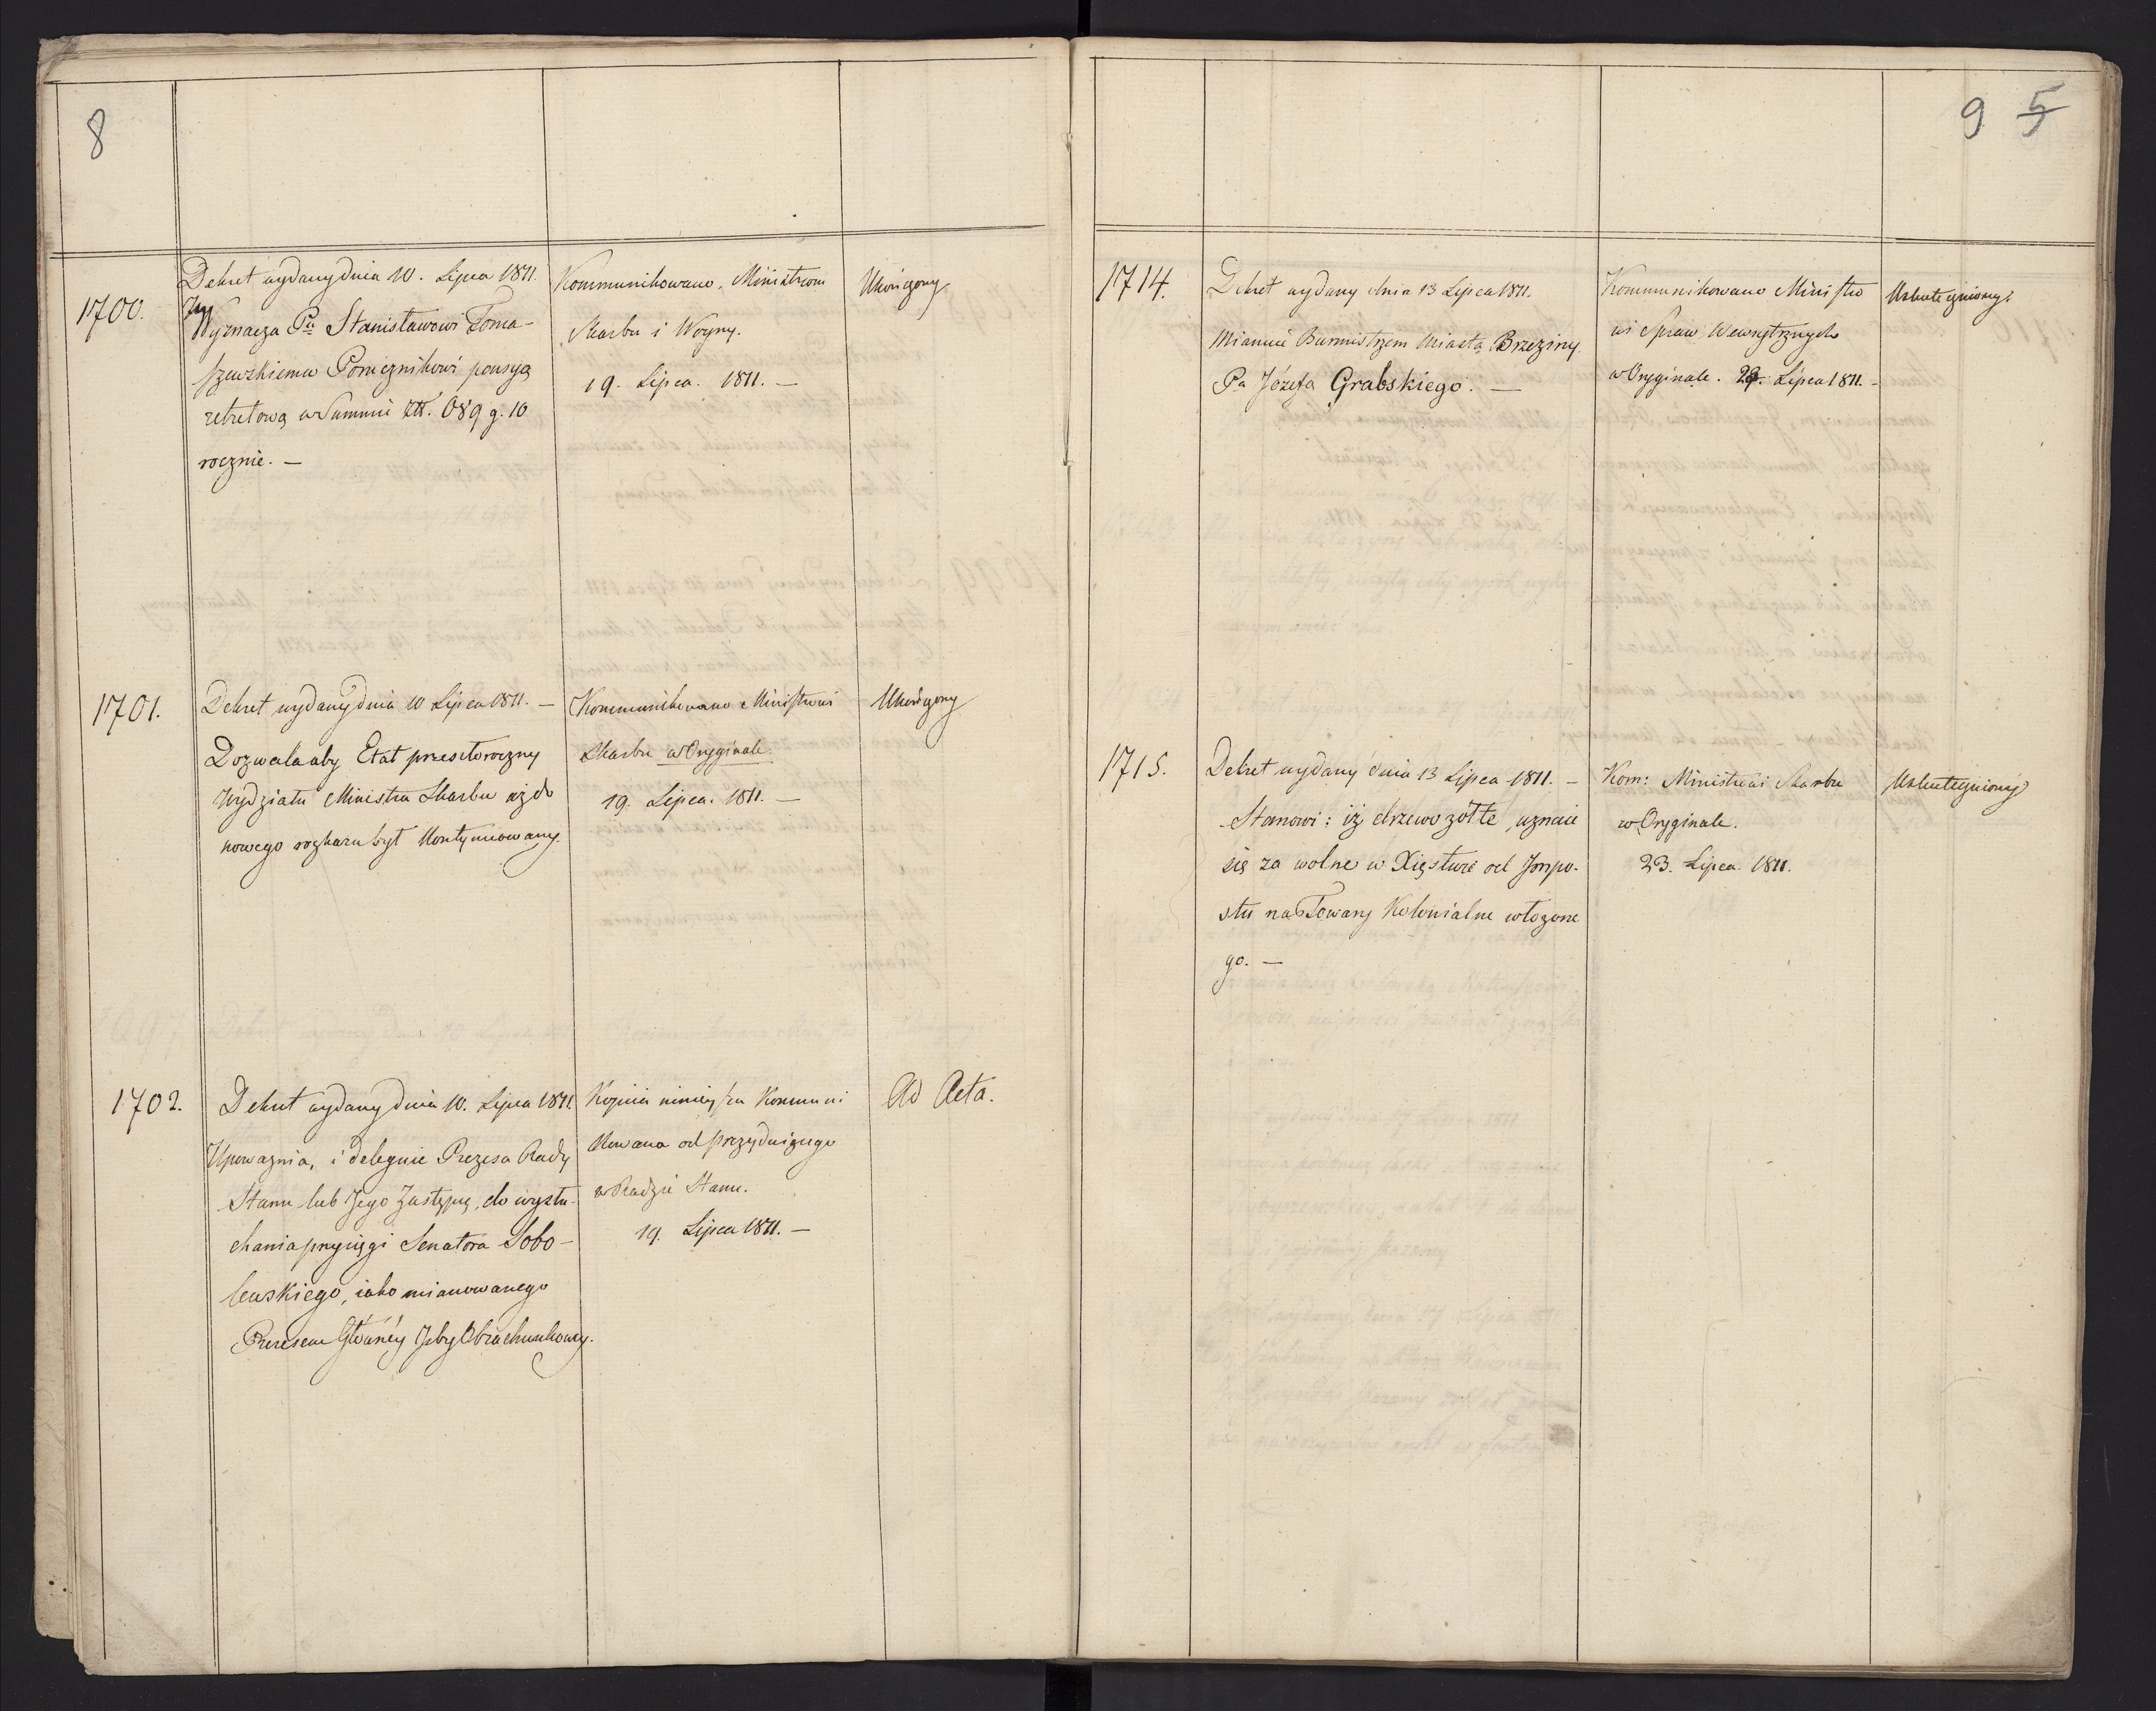 8
1700.
Dekret wydany dnia 10. Lipca 1811.
Wyznacza Pu Stanisławowi Toma-
szewskiemu Porucznikowi pensyą
retretową w Summie Zł. 689 g. 10
rocznie. —
Kommunikowano, Ministrom
Skarbu i Woyny.
19. Lipca. 1811. —
Ukończony
1701.
Dekret wydany dnia 10 Lipca 1811. —
Dozwala aby Etat przeszłoroczny
Wydziału Ministra Skarbu aż do
nowego rozkazu był Kontynuowany.
Kommunikowano Ministrowi
Skarbu w Oryginale.
19. Lipca. 1811. —
Ukończony
1702.
Dekret wydany dnia 10. Lipca 1811.
Upoważnia, i deleguie Prezesa Rady
Stanu lub Jego Zastępcę, do wysłu-
chania przysięgi Senatora Sobo-
lewskiego, iako mianowanego
Prezesem Główney Izby Obrachunkowey.
Kopiia ninieysza Kommuni
kowana od przyduiącego
w Radzie Stanu.
19. Lipca 1811. —
Ad Acta.
9 5
1714.
Dekret wydany dnia 13 Lipca 1811.
Mianuie Burmistrzem Miasta Brzeziny
Pa Józefa Grabskiego. —
Kommunikowano Ministro
wi Spraw Wewnętrznych
w Oryginale. Lipca 1811. —
Uskuteczniony
1715.
Dekret wydany dnia 13 Lipca 1811. —
Stanowi: iż drzewo żółte, uznaie
się za wolne w Xięstwie od Impo-
stu na Towary Kolonialne włożone
go. —
Kom: Ministrowi Skarbu
w Oryginale.
23. Lipca. 1811.
Uskuteczniony